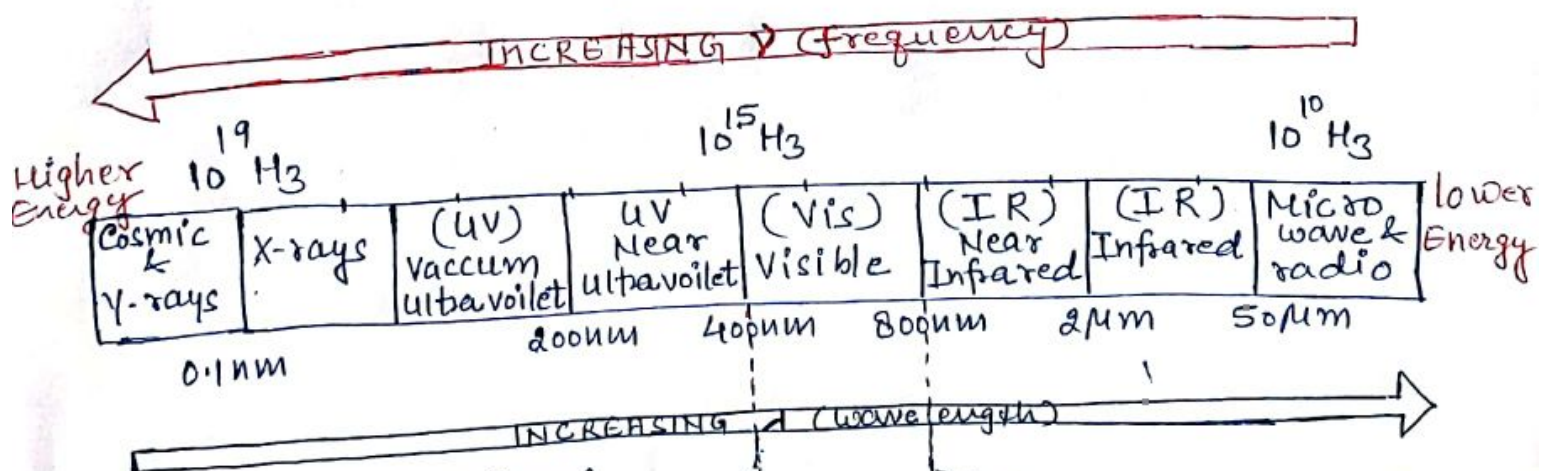 INCREASING ν (frequency)
10¹⁹ Hz
10¹⁵ Hz
10¹⁰ Hz
Higher
Energy
Cosmic
&
γ-rays
X-rays
(UV)
vaccum
ultravoilet
UV
Near
ultravoilet
(Vis)
Visible
(IR)
Near
Infrared
(IR)
Infrared
Micro
wave &
radio
lower
Energy
0.1nm
200nm
400nm
800nm
2μm
50μm
INCREASING λ (wavelength)